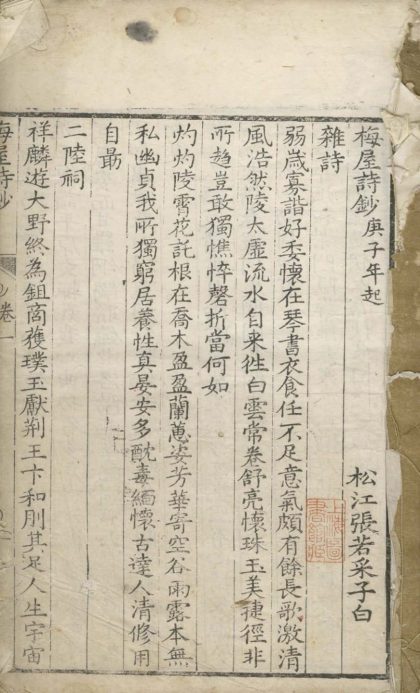 梅屋詩鈔庚子年起
松江張若采子白
雜詩
弱歲寡諧好委懷在琴書衣食任不足意氣頗有餘長歌激清
風浩然陵太虛流水自来徃白雲常卷舒亮懷珠玉美捷徑非
所趨豈敢獨憔悴磬折當何如
灼灼陵霄花託根在喬木盈盈蘭蕙姿芳華寄空谷雨露本無
私幽貞我所獨窮居養性真晏安多酖毒緬懷古達人清修用
自朂
二陸祠
祥麟遊大野終為鉏商獲璞玉獻荆王卞和刖其足人生宇宙
梅屋詩鈔
卷一
上海圖書館藏